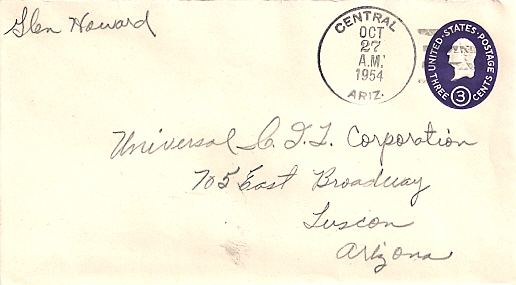 Glen Howard
CENTRAL
OCT
27
A.M.
1954
ARIZ.
UNITED·STATES·POSTAGE
THREE 3 CENTS
Universal C. I. T. Corporation
705 East Broadway
Tuscon
Arizona